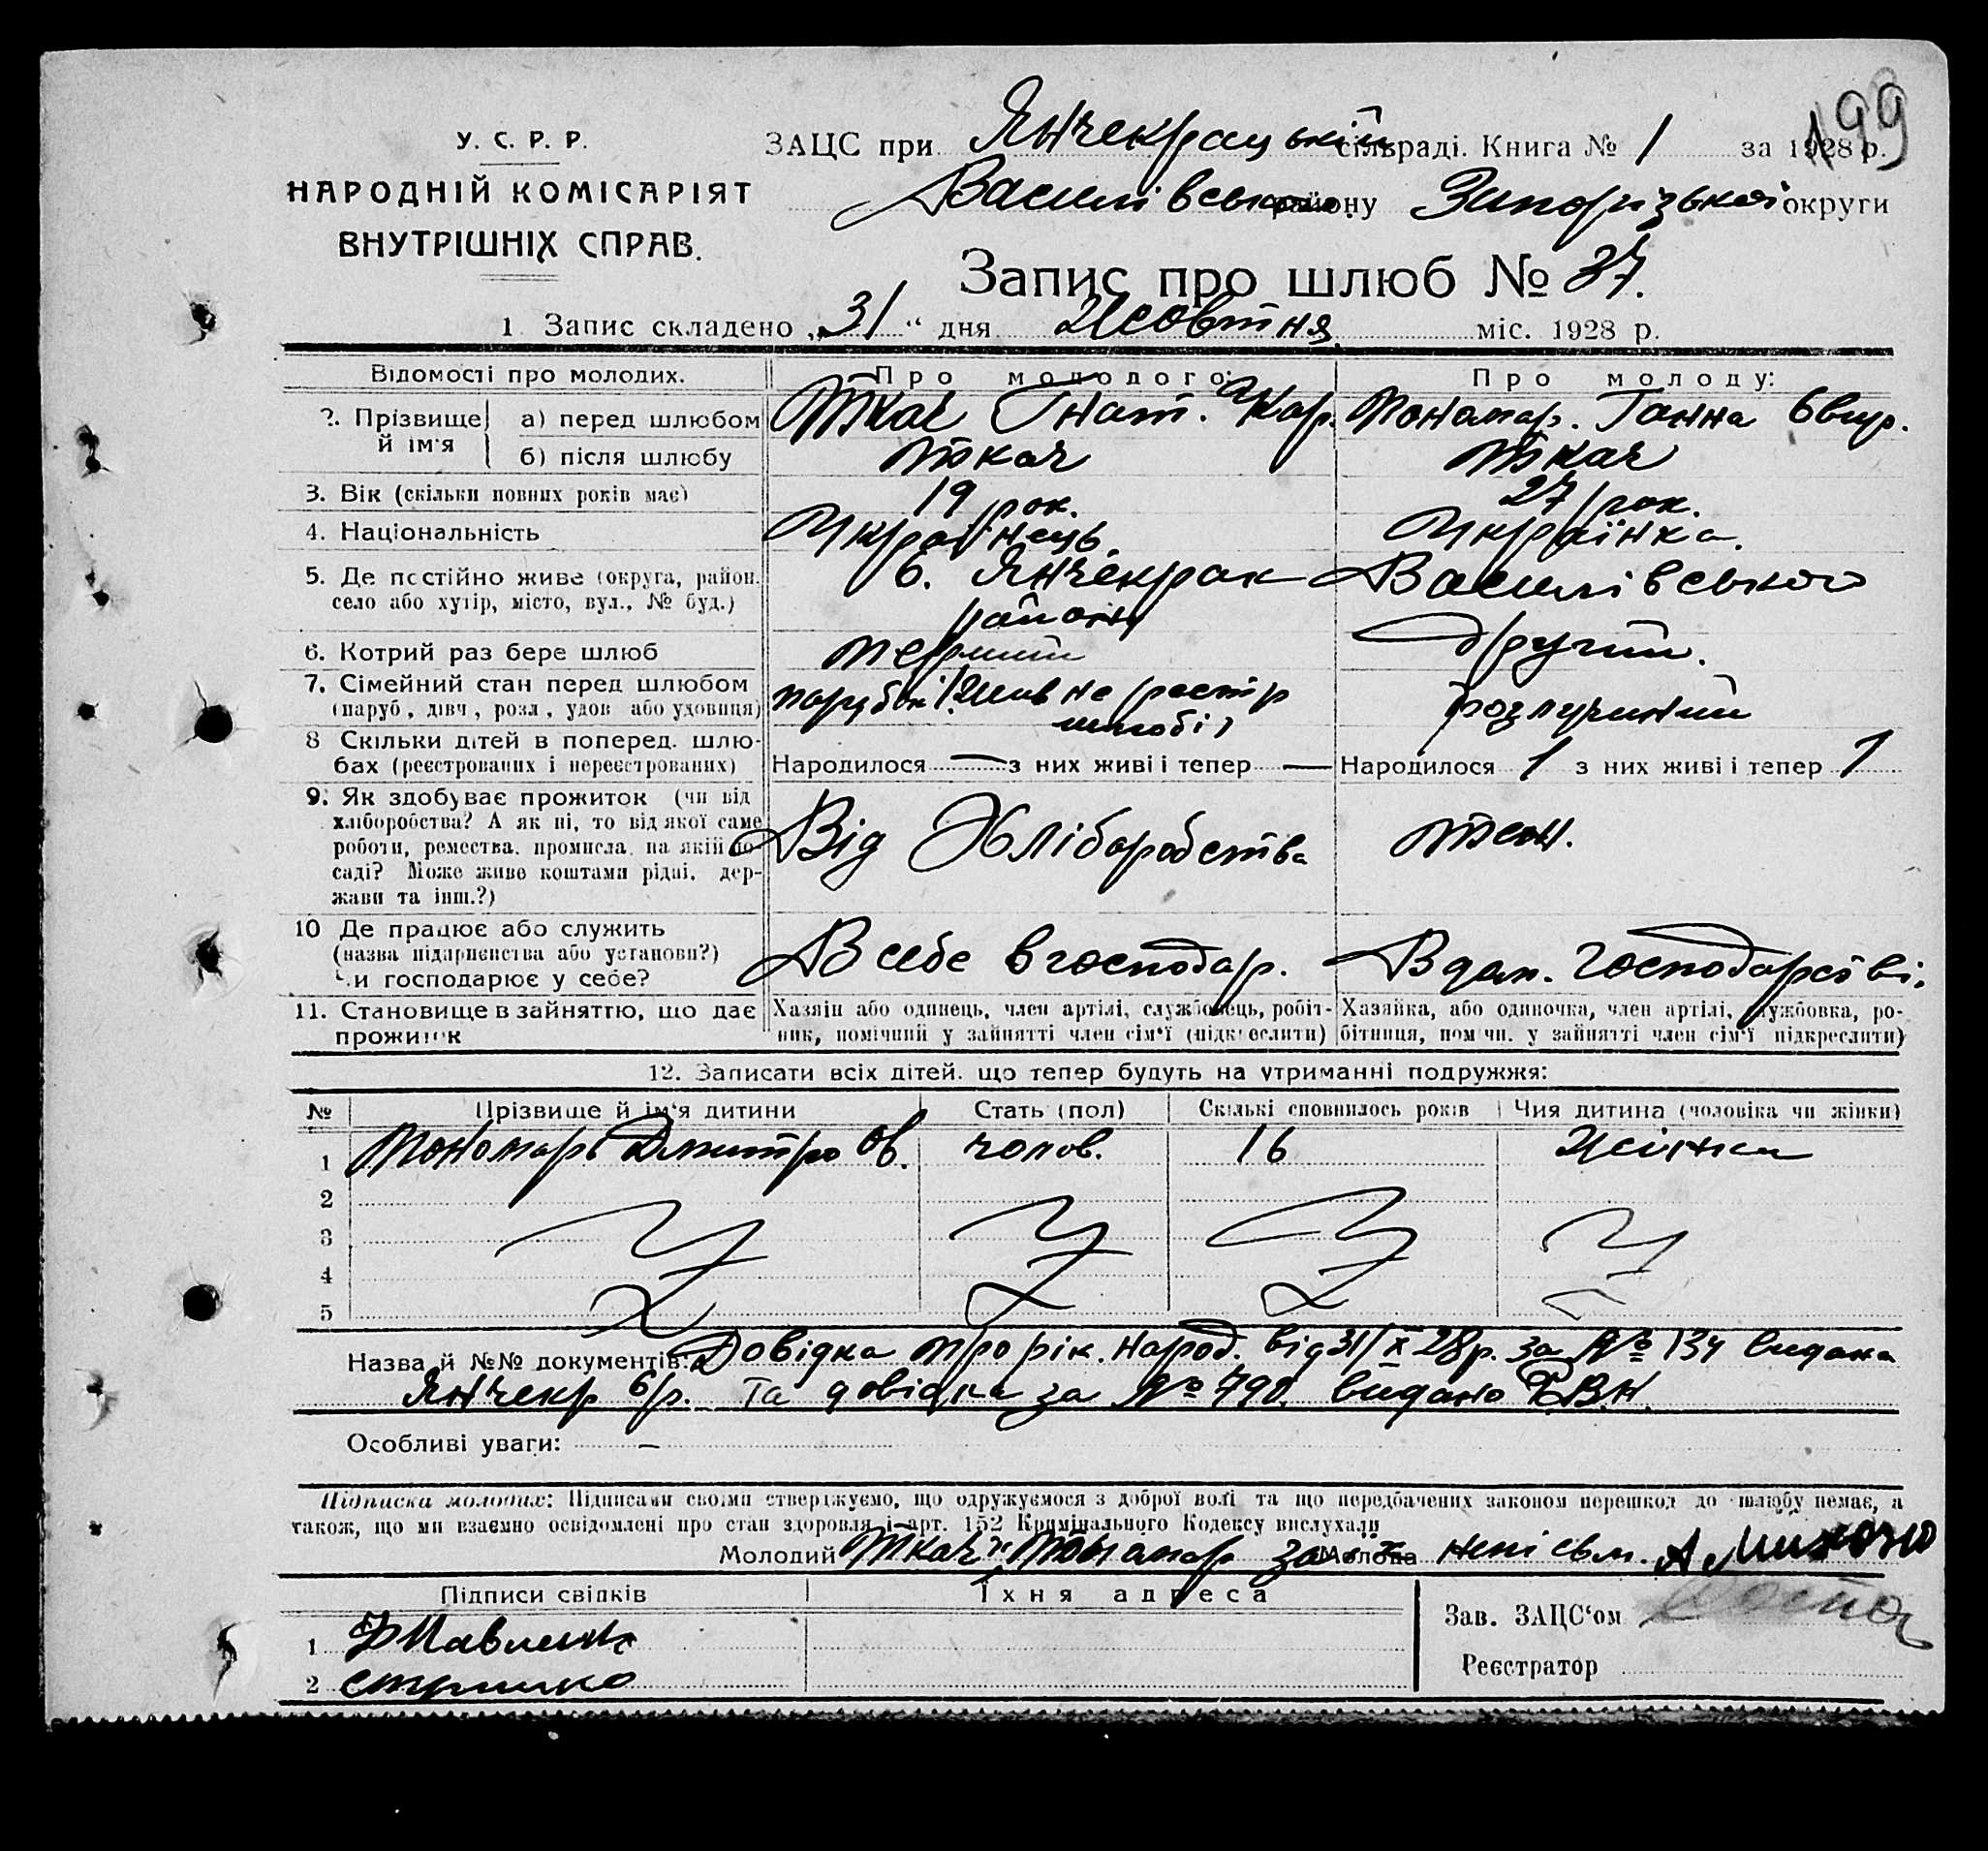 199
У. С. Р. Р.
НАРОДНІЙ КОМІСАРІЯТ
ВНУТРІШНІХ СПРАВ.
ЗАЦС при Янчекрацькій сільраді. Книга № 1 за 1928 р.
Василівського району Запорізької округи
Запис про шлюб № 37.
1 Запис складено „31“ дня Жовтня міс. 1928 р.
Відомості про молодих. Про молодого: Про молоду:
2. Прізвище й ім'я а) перед шлюбом Ткач Гнат. Кар. Пономар. Ганна
б) після шлюбу Ткач Ткач
3. Вік (скільки повних років має) 19 рок. 27 рок.
4. Національність Українець. Українка.
5. Де постійно живе (округа, район. с. Янчекрак Василівського
село або хутір, місто, вул., № буд.) району
6. Котрий раз бере шлюб перший другий.
7. Сімейний стан перед шлюбом парубок
(паруб, дівч, розл, удов або удовиця) шлюбі) розлучиний
8 Скільки дітей в поперед. шлю-
бах (реєстрованих і нереєстрованих) Народилося — з них живі і тепер — Народилося 1 з них живі і тепер 1
9. Як здобуває прожиток (чи від
хліборобства? А як ні, то від якої саме Від Хліборобства теж.
роботи, ремества. промисла. на якій по-
саді? Може живе коштами рідні, дер-
жави та інш.?)
10 Де працює або служить
(назва підприємства або установи?) В себе в господар. В дан. господарстві.
Чи господарює у себе?
11. Становище в зайняттю, що дає Хазяін або одинець, член артілі, службовець, робіт- Хазяйка, або одиночка, член артілі, службовка, ро-
прожиток ник, помічний у зайнятті член сім'ї (підкреслити) бітниця, помічн. у зайнятті член сім'ї підкреслити)
12. Записати всіх дітей. що тепер будуть на утриманні подружжя:
№ Прізвище й ім'я дитини Стать (пол) Скількі сповнилось років Чия дитина (чоловіка чи жінки)
1 Пономарь Дмитро Ов. чолов. 16 Жінки
2
3
4
5
Назва й №№ документів: Довідка про рік. народ. від 31/X 28р. за № 134 видана
Янчекр с/р. та довідка за № 790. видано
Особливі уваги: —
Підписка молодих: Підписами своїми стверджуємо, що одружуємося з доброї волі та що передбачених законом перешкод до шлюбу немає, а
також, що ми взаємно освідомлені про стан здоровля і арт. 152 Кримінального Кодексу вислухали
Молодий Ткач и Понамар за Молода
Підписи свідків Їхня адреса
1 Павленко Зав. ЗАЦС'ом
2 Реєстратор